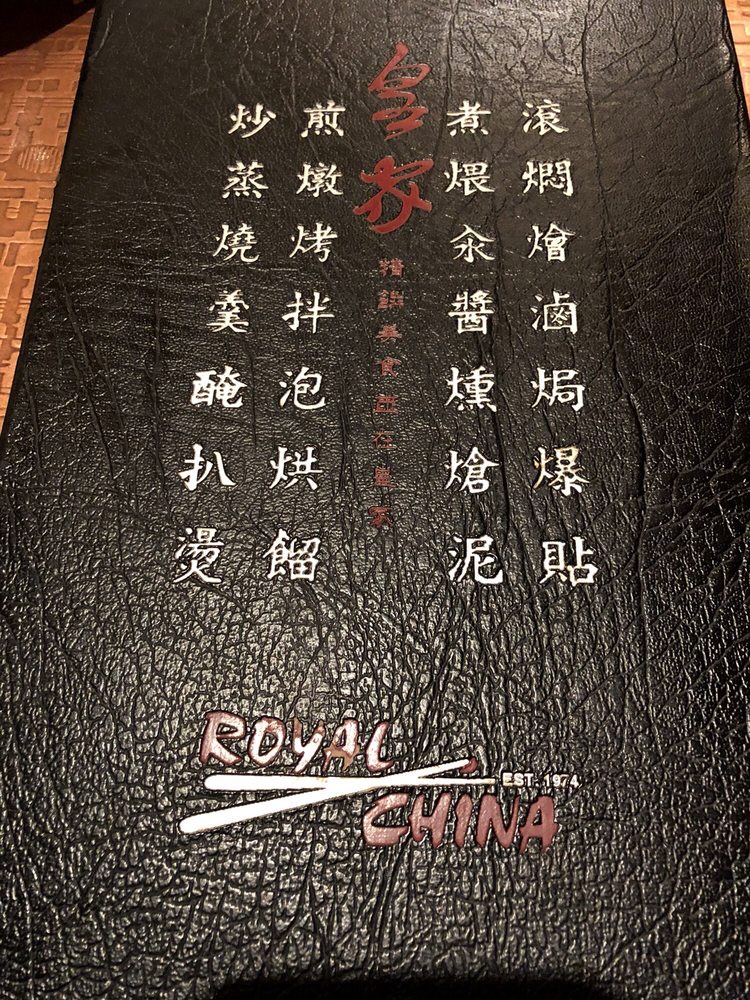 滾燜燴滷焗爆貼
煮煨汆醬燻熗泥
皇家
精饌美食盡在皇家
煎燉烤拌泡烘餾
炒蒸燒羹醃扒燙
ROYAL
EST. 1974
CHINA